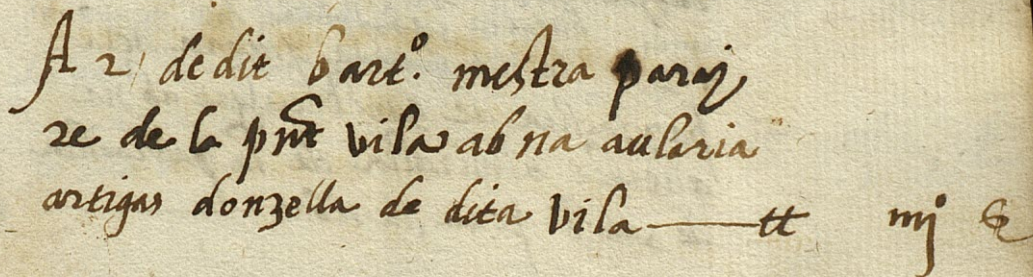 A 2 de dit bart.º mestra paray
re de la pnt vila ab na aularia
artigas donzella de dita vila —— tt iiijº s